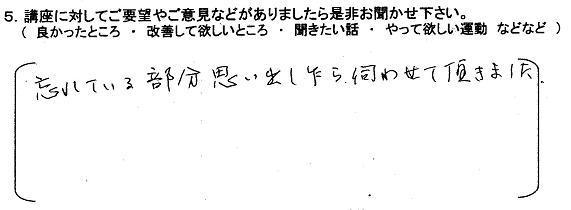 5. 講座に対してご要望やご意見などがありましたら是非お聞かせ下さい。
( 良かったところ ・ 改善して欲しいところ ・ 聞きたい話 ・ やって欲しい運動 などなど )
忘れている部分思い出したら、伺わせて頂きます